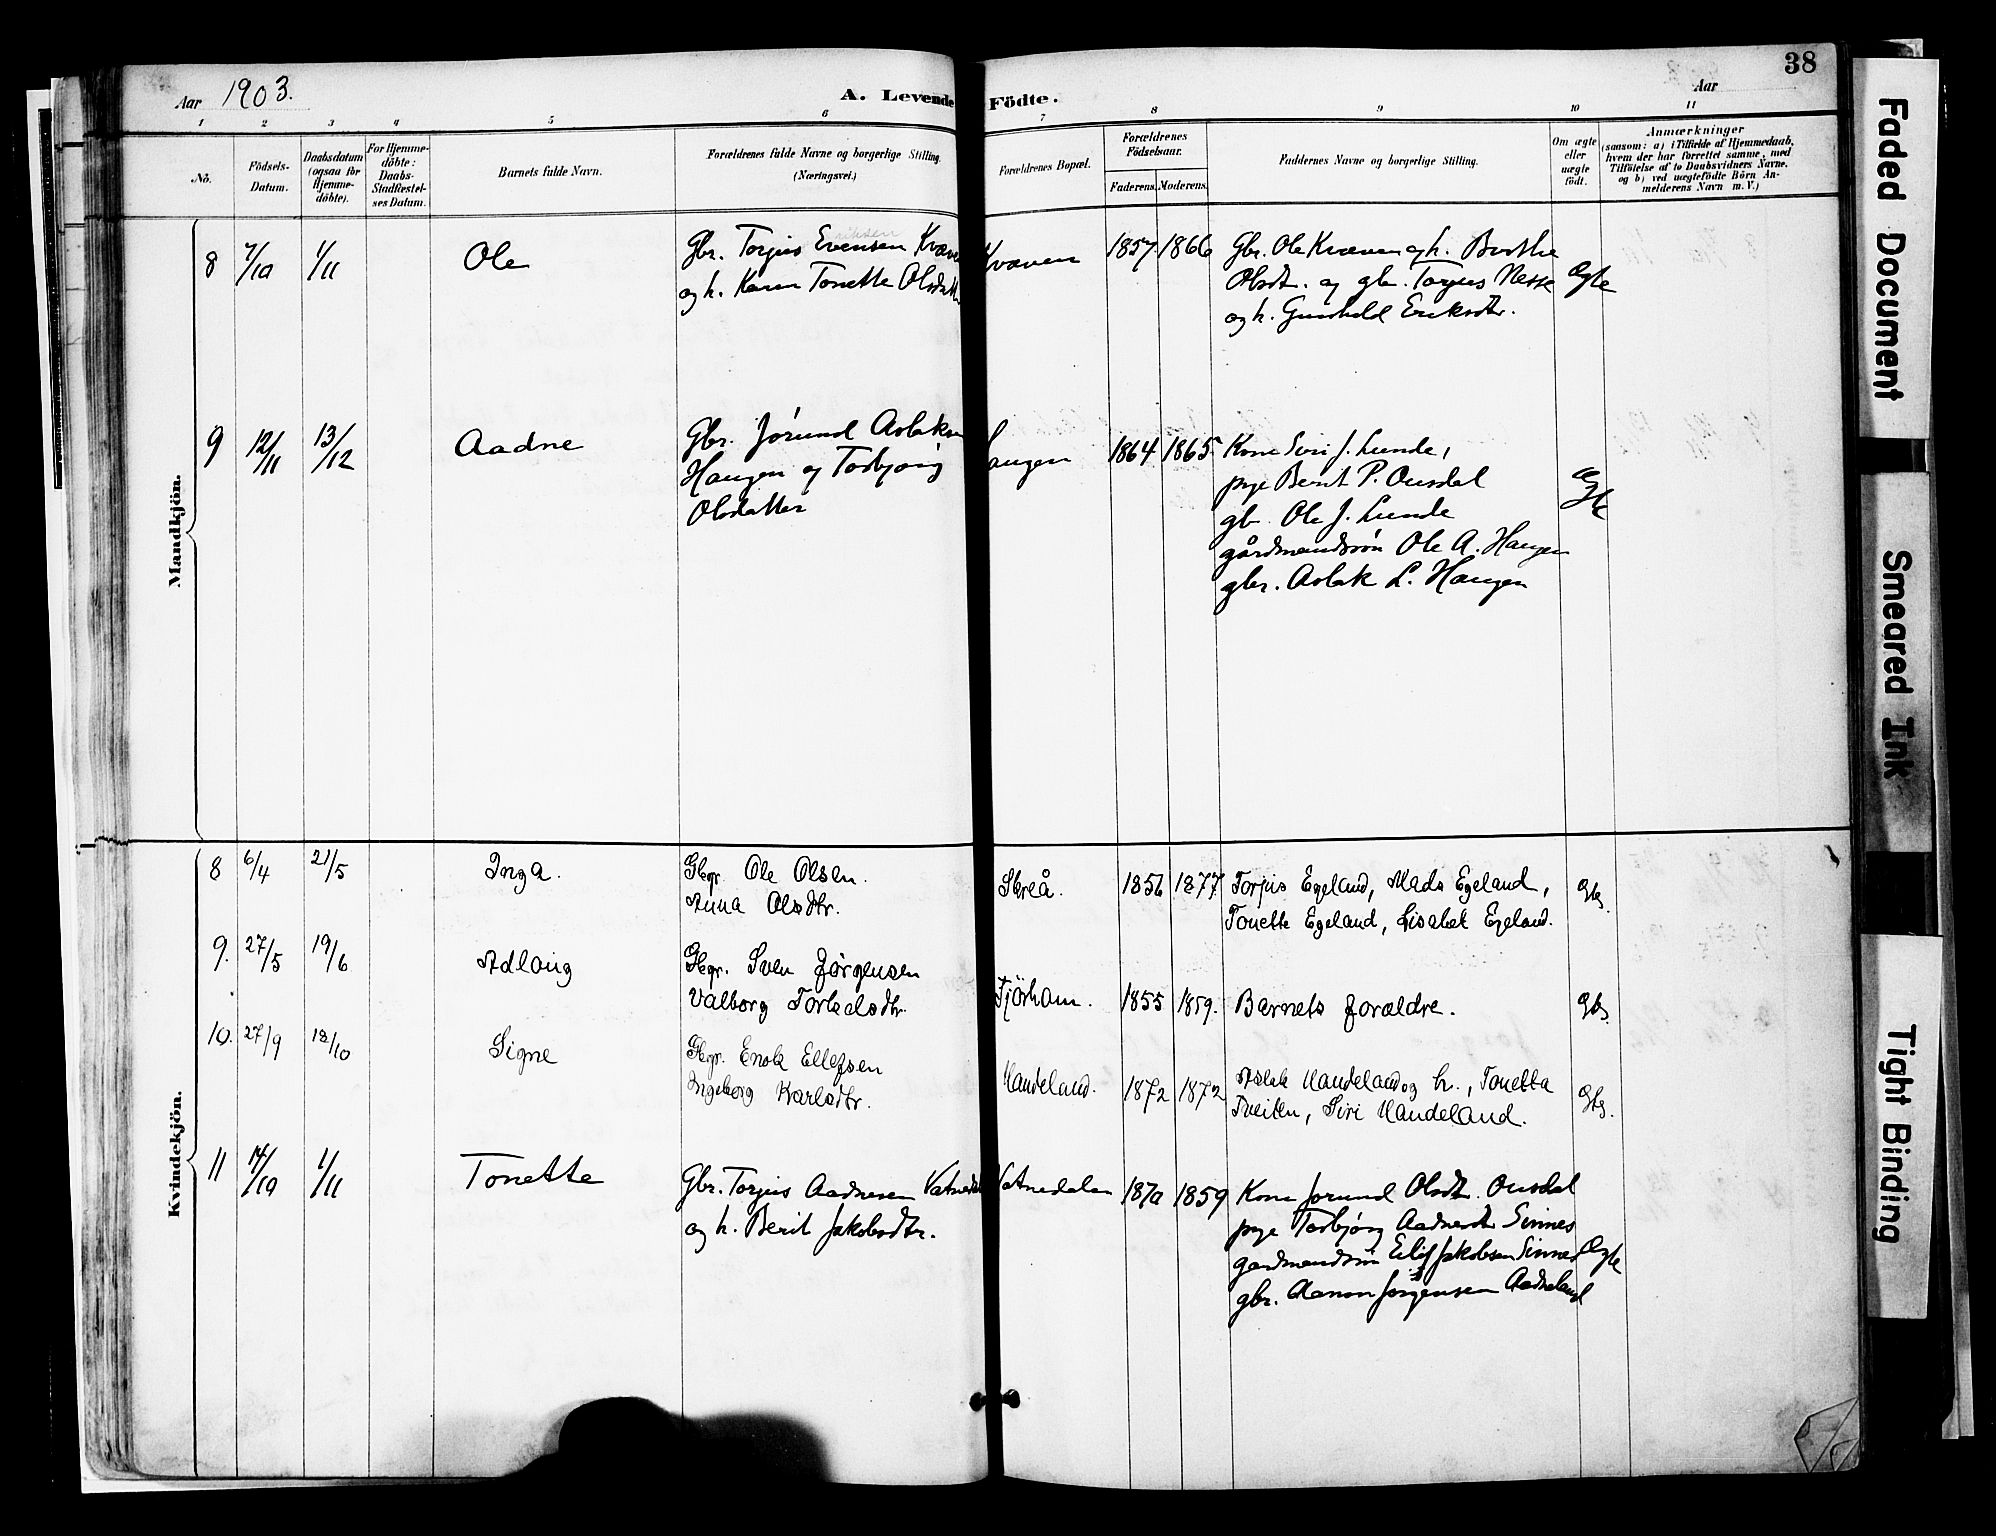 38
Aar 1903.
A. Levende Födte.
Aar
1 2 3 4 5 6 7 8 9 10 11
No.
Födsels-Datum.
Daabsdatum (ogsaa for Hjemmedöbte).
For Hjemmedöbte: Daabs-Stadfæstelses Datum.
Barnets fulde Navn.
Forældrenes fulde Navne og borgerlige Stilling.
(Næringsvei.)
Forældrenes Bopæl.
Forældrenes Födselsaar.
Faderens. Moderens.
Faddernes Navne og borgerlige Stilling.
Om ægte eller uægte födt.
Anmærkninger
(saasom: a) i Tilfælde af Hjemmedaab, hvem der har forrettet samme, med Tilföielse af to Daabsvidners Navne. og b) ved uægtefödte Börn Anmelderens Navn m. V.)
Mandkjön.
8 7/10 1/11 Ole
Gbr. Torjus Evensen
og h. Karen Tonette Olsdatter
Kvæven 1857 1866
Gbr. Ole Kvæven og h. Berthe
Olsdt. og gbr. Torjus Nesse
og h. Gunhild Eriksdtr.
Ægte
9 12/11 13/12 Aadne
Gbr. Jörund Aslaksen
Haugen og Torbjørg
Olsdatter
Haugen 1864 1865
Kone Siri J. Lunde,
pige Berit P. Ousdal
gb. Ole J. Lunde
gårdmandssön Ole A. Haugen
gbr. Aslak L. Haugen
Ægte
Kvindekjön.
8 6/4 21/5 Inga.
Gbgr. Ole Olsen.
Anna Olsdtr.
Skreå. 1856 1877
Torjus Egeland, Mads Egeland,
Tonette Egeland, Lisabet Egeland.
9. 27/5 19/6 Adlaug
Gbgr. Sven Jørgensen
Valborg Torkelsdtr.
Fjörham. 1855 1859.
Barnets forældre.
10. 27/9 18/10 Signe
Gbgr. Enok Ellefsen
Ingeborg Karlsdtr.
Haudeland. 1872 1872
Aslak Haudeland og h., Tonetta
Tveiten, Siri Haudeland.
11 14/10 1/11 Tonette
Gbr. Torjus Aadnesen Vatnedal
og h. Berit Jakobsdtr.
Vatnedalen 1870 1859
Kone Jorund Olsdt. Ousdal
pige Torbjörg Aadnesdtr Sinnes
gardmandssön Eilif Jakobsen Sinnes
gbr. Aanon Jörgensen Aadneland
Ægte
Faded Document
Smeared Ink
Tight Binding